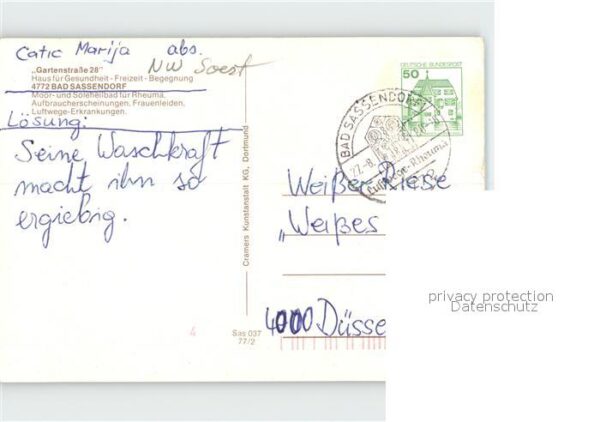 Catic Marija abs.
NW Soest
„Gartenstraße 28"
Haus für Gesundheit - Freizeit - Begegnung
4772 BAD SASSENDORF
Moor- und Soleheilbad für Rheuma,
Aufbraucherscheinungen, Frauenleiden,
Luftwege-Erkrankungen.
Lösung:
Seine Waschkraft
macht ihn so
ergiebig.
Cramers Kunstanstalt KG, Dortmund
4
Sas 037
77/2
DEUTSCHE BUNDESPOST
50
BAD SASSENDORF
27.-8.
Luftwege-Rheuma
Weißer Riese
„Weißes
4000 Düsse
privacy protection
Datenschutz